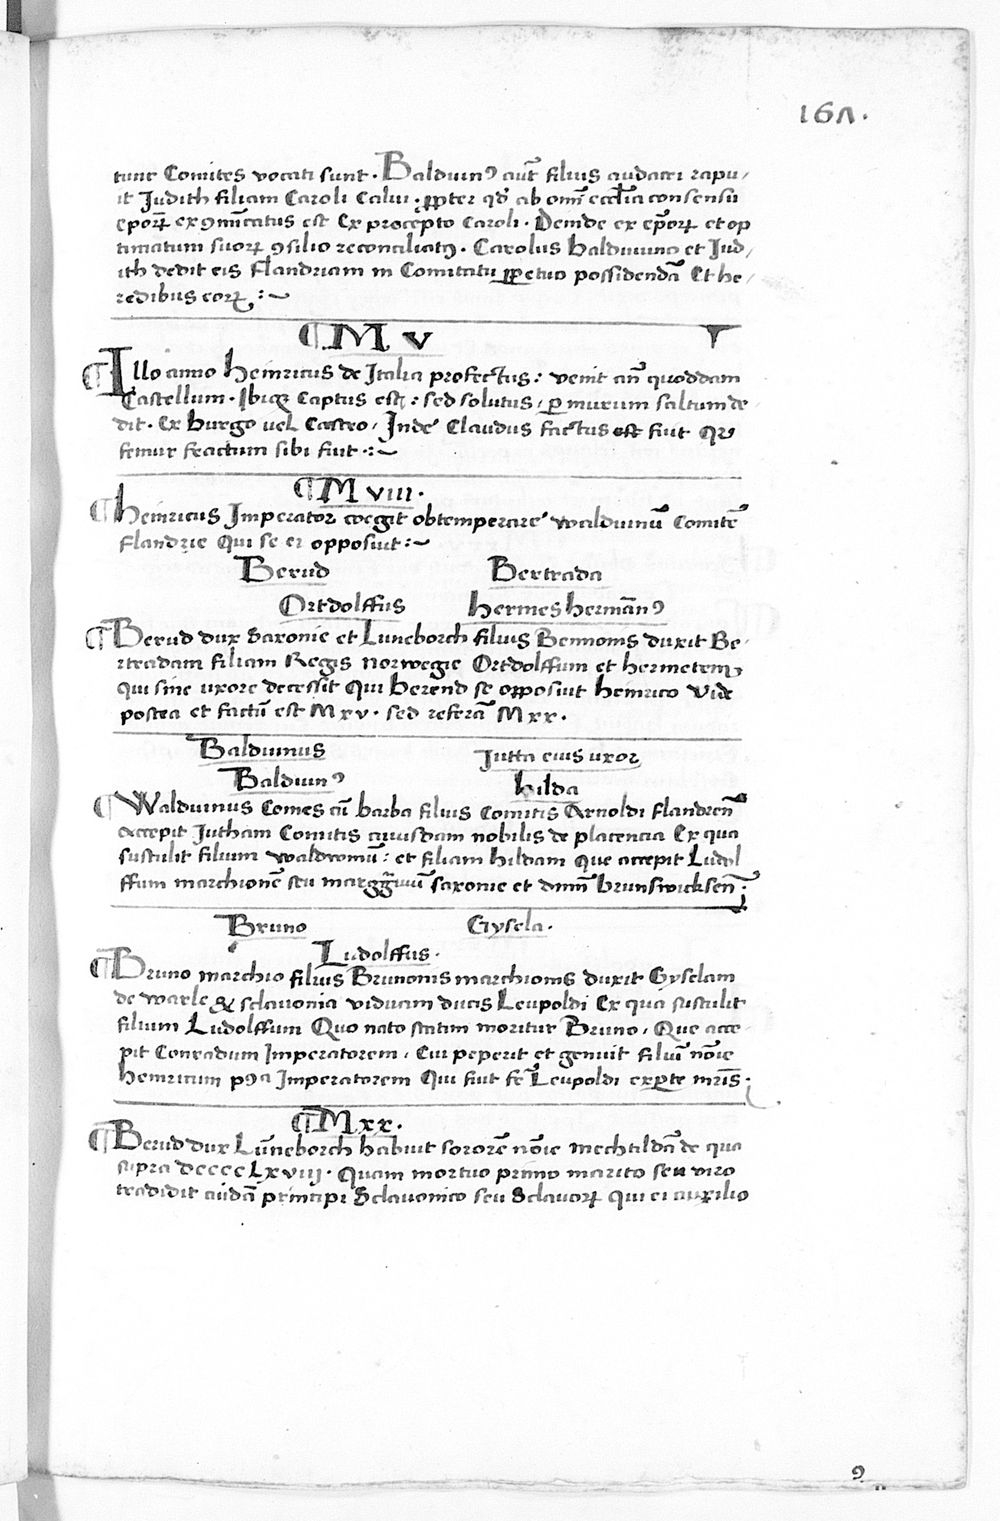 167.
tunc Comites vocati sunt. Balduin⁹ aut̄ filius audacter rapu/
it Judith filiam Caroli Calui. ꝓpter qd̄ ab omī eccl̄ia consensu
eporꝝ exꝯmūicatus est Ex precepto Caroli. Deinde ex ep̄orꝝ et op
timatum suorꝝ ꝯsilio reconciliatꝯ. Carolus balduino et Jud/
ith dedit eis flandriam in Comitatu ꝑpetuo possidendā Et he/
redibus eorꝝ :~
¶ M v
¶ Illo anno heinricus de Italia profectus: venit an̄ quoddam
Castellum. Ibiqꝫ Captus est: sed solutus, ꝑ murum saltum de
dit. Ex burgo vel Castro, Inde Claudus factus est fiut Qꝛ
femur fractum sibi fiut .:~
¶ M viii.
¶ heinricus Imperator coegit obtemperare walduinū Comitē
flandrie Qui se ei opposuit :~
Bernd Bertrada
Ortdolffus hermes hermān⁹
¶ Bernd dux Saxonie et Luneborch filius Bennonis duxit Be/
rtradam filiam Regis norwegie Ortdolffum et hermetem,
qui sine uxore decessit Qui berend se opposuit heinrico Vide
postea et factū est M xv. sed referā M xx.
Balduinus Jutta eius uxor
Balduin⁹ hilda
¶ Walduinus Comes cū barba filius Comitis Arnoldi flandren̄
Accepit Jutham Comitis cuiusdam nobilis de placencia Ex qua
sustulit filium waldwinū: et filiam hildam Que accepit Ludol
ffum marchionē seu marggrauiū saxonie et dn̄m brunswicksen̄:
Bruno Gysela.
Ludolffus.
¶ Bruno marchio filius Brunonis marchionis duxit Gyselam
de warle & sclauonia viduam ducis Leupoldi Ex qua sustulit
filium Ludolffum Quo nato statim moritur Bruno, Que acce
pit Conradum Imperatorem, Cui peperit et genuit filiū noīe
heinricum pꝯa Imperatorem Qui fiut fr̄ Leupoldi ex ꝑte mr̄is.
¶ M xx.
¶ Bernd dux Lūneborch habuit sororē noīe mechtildā de qua
supra dccccLxviij. Quam mortuo primo marito seu viro
tradidit cuidā principi Sclauonico seu Sclauorꝝ qui ei auxilio